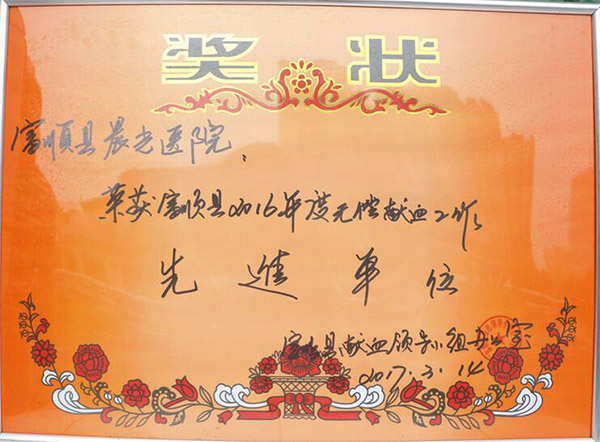 奖状
富顺县晨光医院：
荣获富顺县2016年度无偿献血工作
先進单位
富顺县献血领导小组办公室
2017.3.14